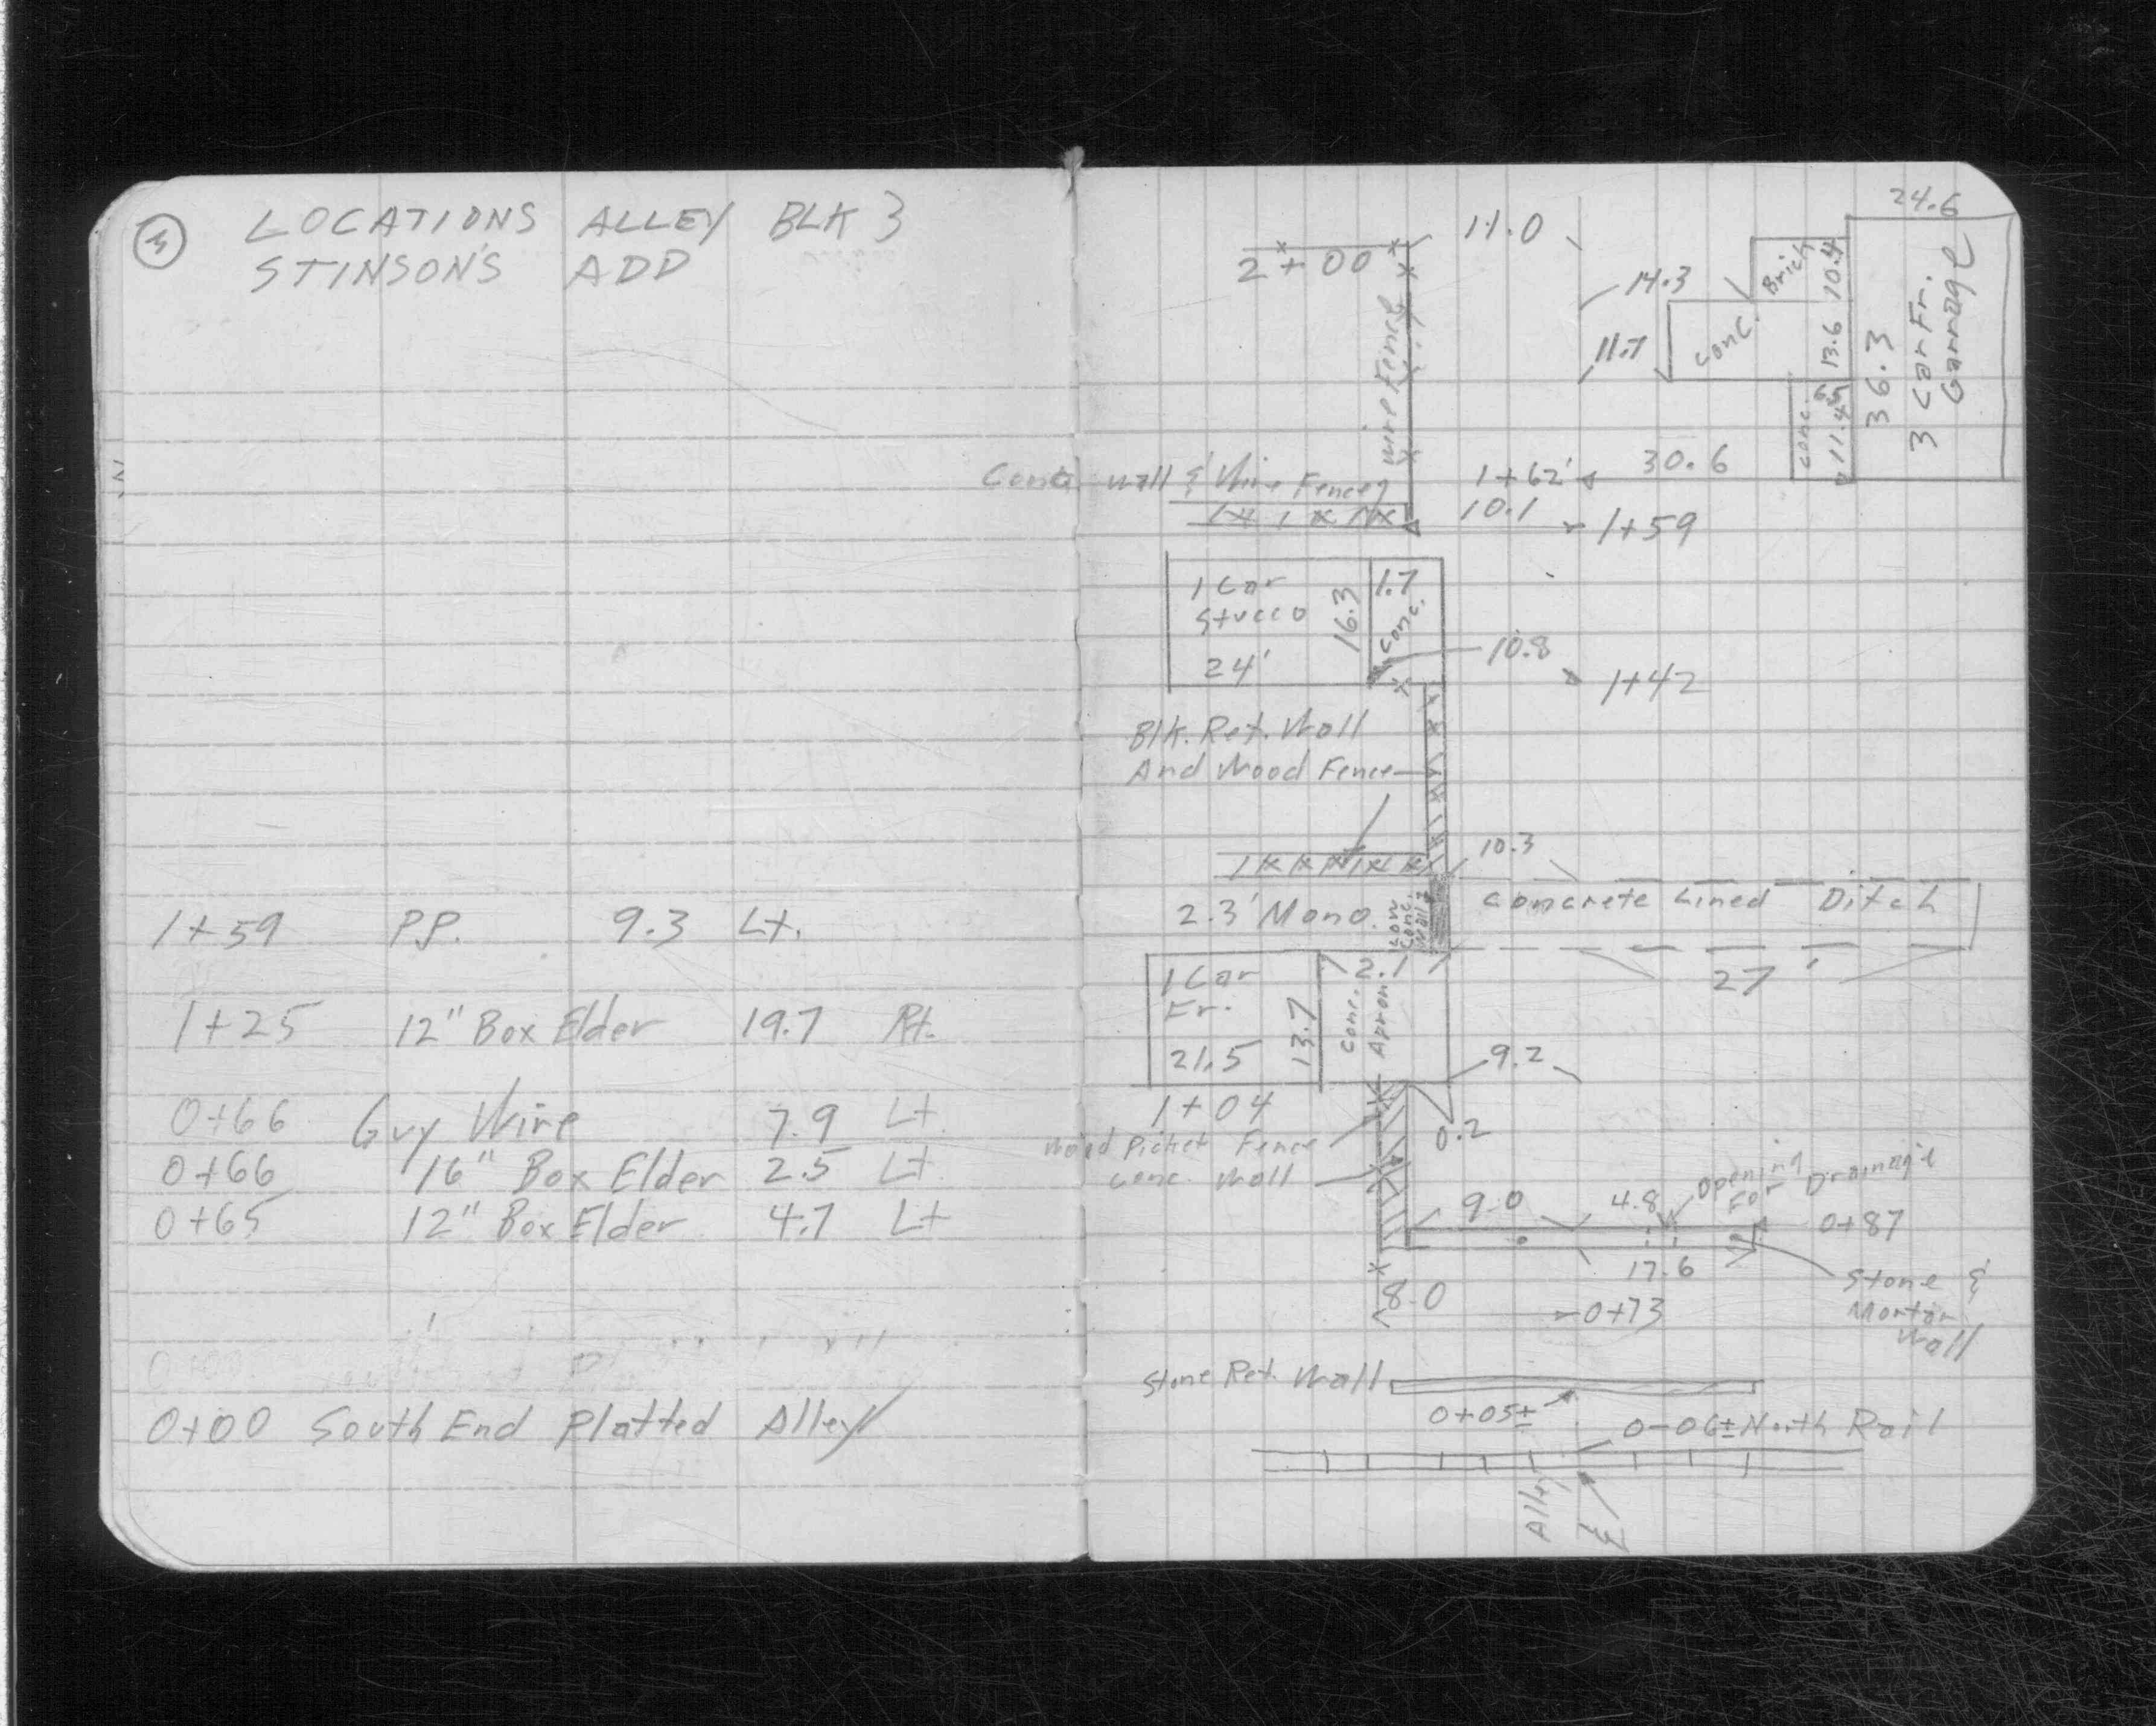 3
LOCATIONS ALLEY BLK 3
STINSON'S ADD
1+59 P.P. 9.3 Lt.
1+25 12" Box Elder 19.7 Rt.
0+66 Guy Wire 7.9 Lt
0+66 16" Box Elder 2.5 Lt
0+65 12" Box Elder 4.7 Lt
0+00
0+00 South End Platted Alley
24.6
11.0
2+00
14.3
Brick
10.4
11.7
Conc.
13.6
36.3
3 Car Fr.
Garrage
wire Fence
conc.
11.4
30.6
Conc. wall & Wire Fence
1+62
10.1
1+59
1 Car
Stucco
24'
16.3
1.7
Conc.
10.8
1+42
Blk. Ret. Wall
And Wood Fence
10.3
2.3' Mono.
Low
Conc.
Wall
Concrete Lined Ditch
27'
1 Car
Fr.
21.5
13.7
2.1
Conc.
Apron
9.2
1+04
0.2
Wood Picket Fence
Conc. Wall
9.0
4.8
Opening
For Drainage
0+87
17.6
8.0
0+73
Stone &
Mortar
Wall
Stone Ret. Wall
0+05±
0-06± North Rail
Alley